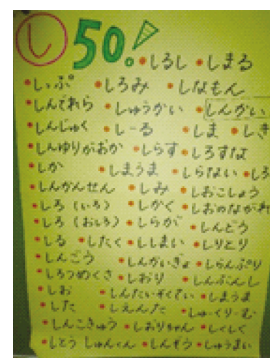 し 50! •しるし •しまる
•しっぷ •しろみ •しなもん
•しんでれら •しゅうかい •しんかい
•しんじゅく •しーる •しま •しき
•しんゆりがおか •しらす •しろすな
•しか •しまうま •しらない
•しんかんせん •しみ •しおこしょう
•しろ(いろ) •しかく •しおのながれ
•しろ(おしろ) •しらが •しんどう
•しる •したく •ししまい •しりとり
•しんごう •しんかいぎょ •しらんぷり
•しろつめくさ •しおり •しんぶんし
•しお •しんたいそくてい •しまうま
•した •しえんた •しゅーくりーむ
•しんこきゅう •しおりちゃん •しくしく
•しとう しゅんくん •しんぞう •しゅうまい